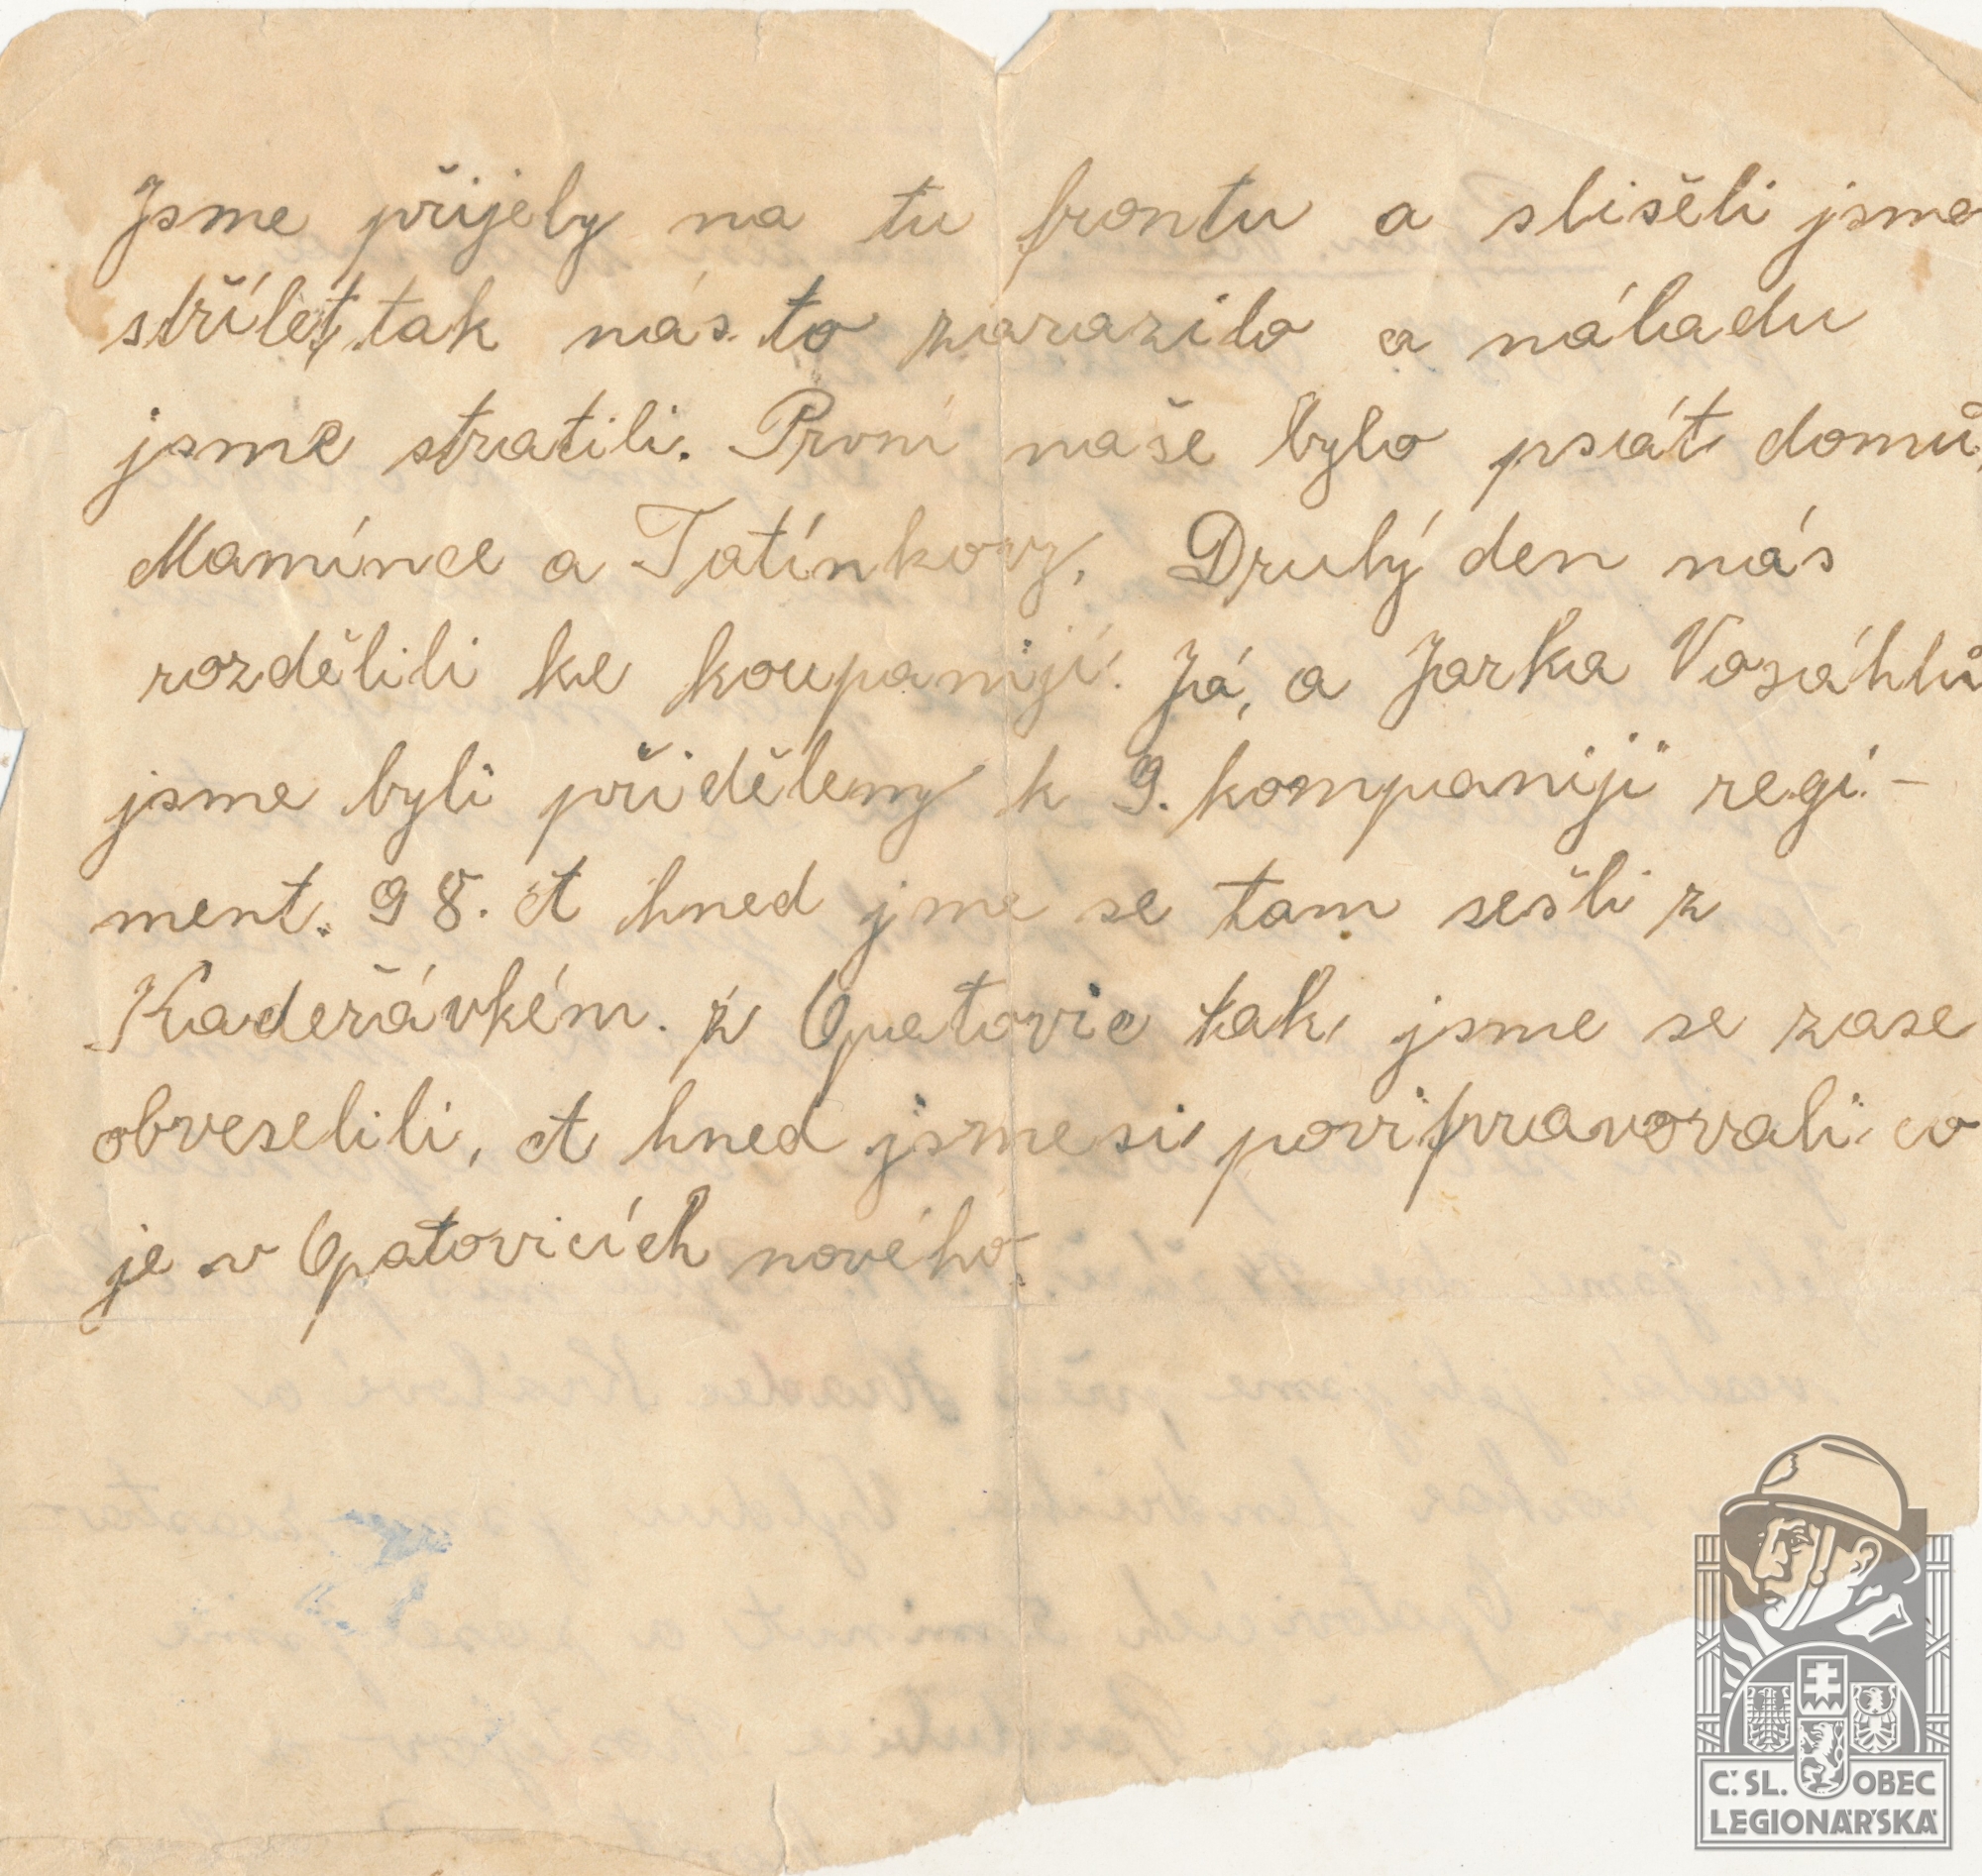 Jsme přijely na tu frontu a slišěli jsme
střílet, tak nás to zarazilo a náladu
jsme stratili. První naše bylo psát domů,
Mamínce a Tatínkovy. Druhý den nás
rozdělili ke koupaniji. Já, a Jarka Vosáhlů
jsme byli přiděleny k 9. kompaniji regi-
ment. 98. A hned jme se tam sešli z
Kadeřávkém. z Opatovic tak jsme se zase
obveselili, A hned jsme si povipravovali co
je v Opatovicích nového.
Č. SL. OBEC
LEGIONÁŘSKÁ